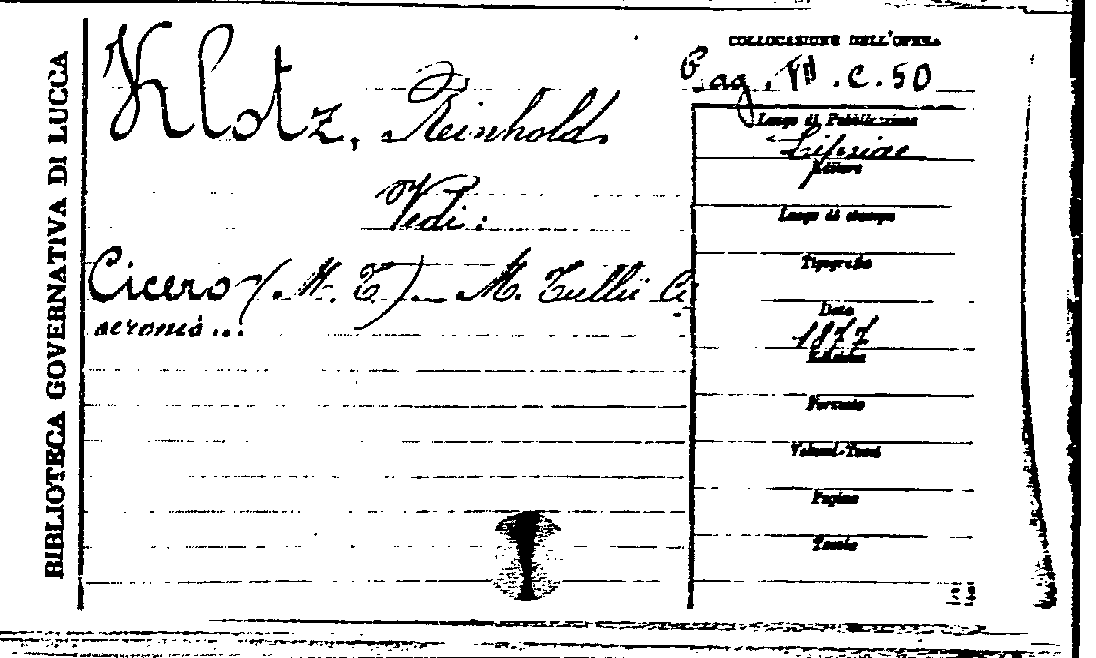 BIBLIOTECA GOVERNATIVA DI LUCCA
Klotz, Reinhold
Vedi:
Cicero (M. T.) — M. Tullii Ci
ceronis ...
COLLOCAZIONE DELL'OPERA
Pag. VII . C. 50
Luogo di Pubblicazione
Lipsiae
Editore
Luogo di stampa
Tipografia
Data
1877
Edizione
Formato
Volumi-Tomi
Pagine
Tavole